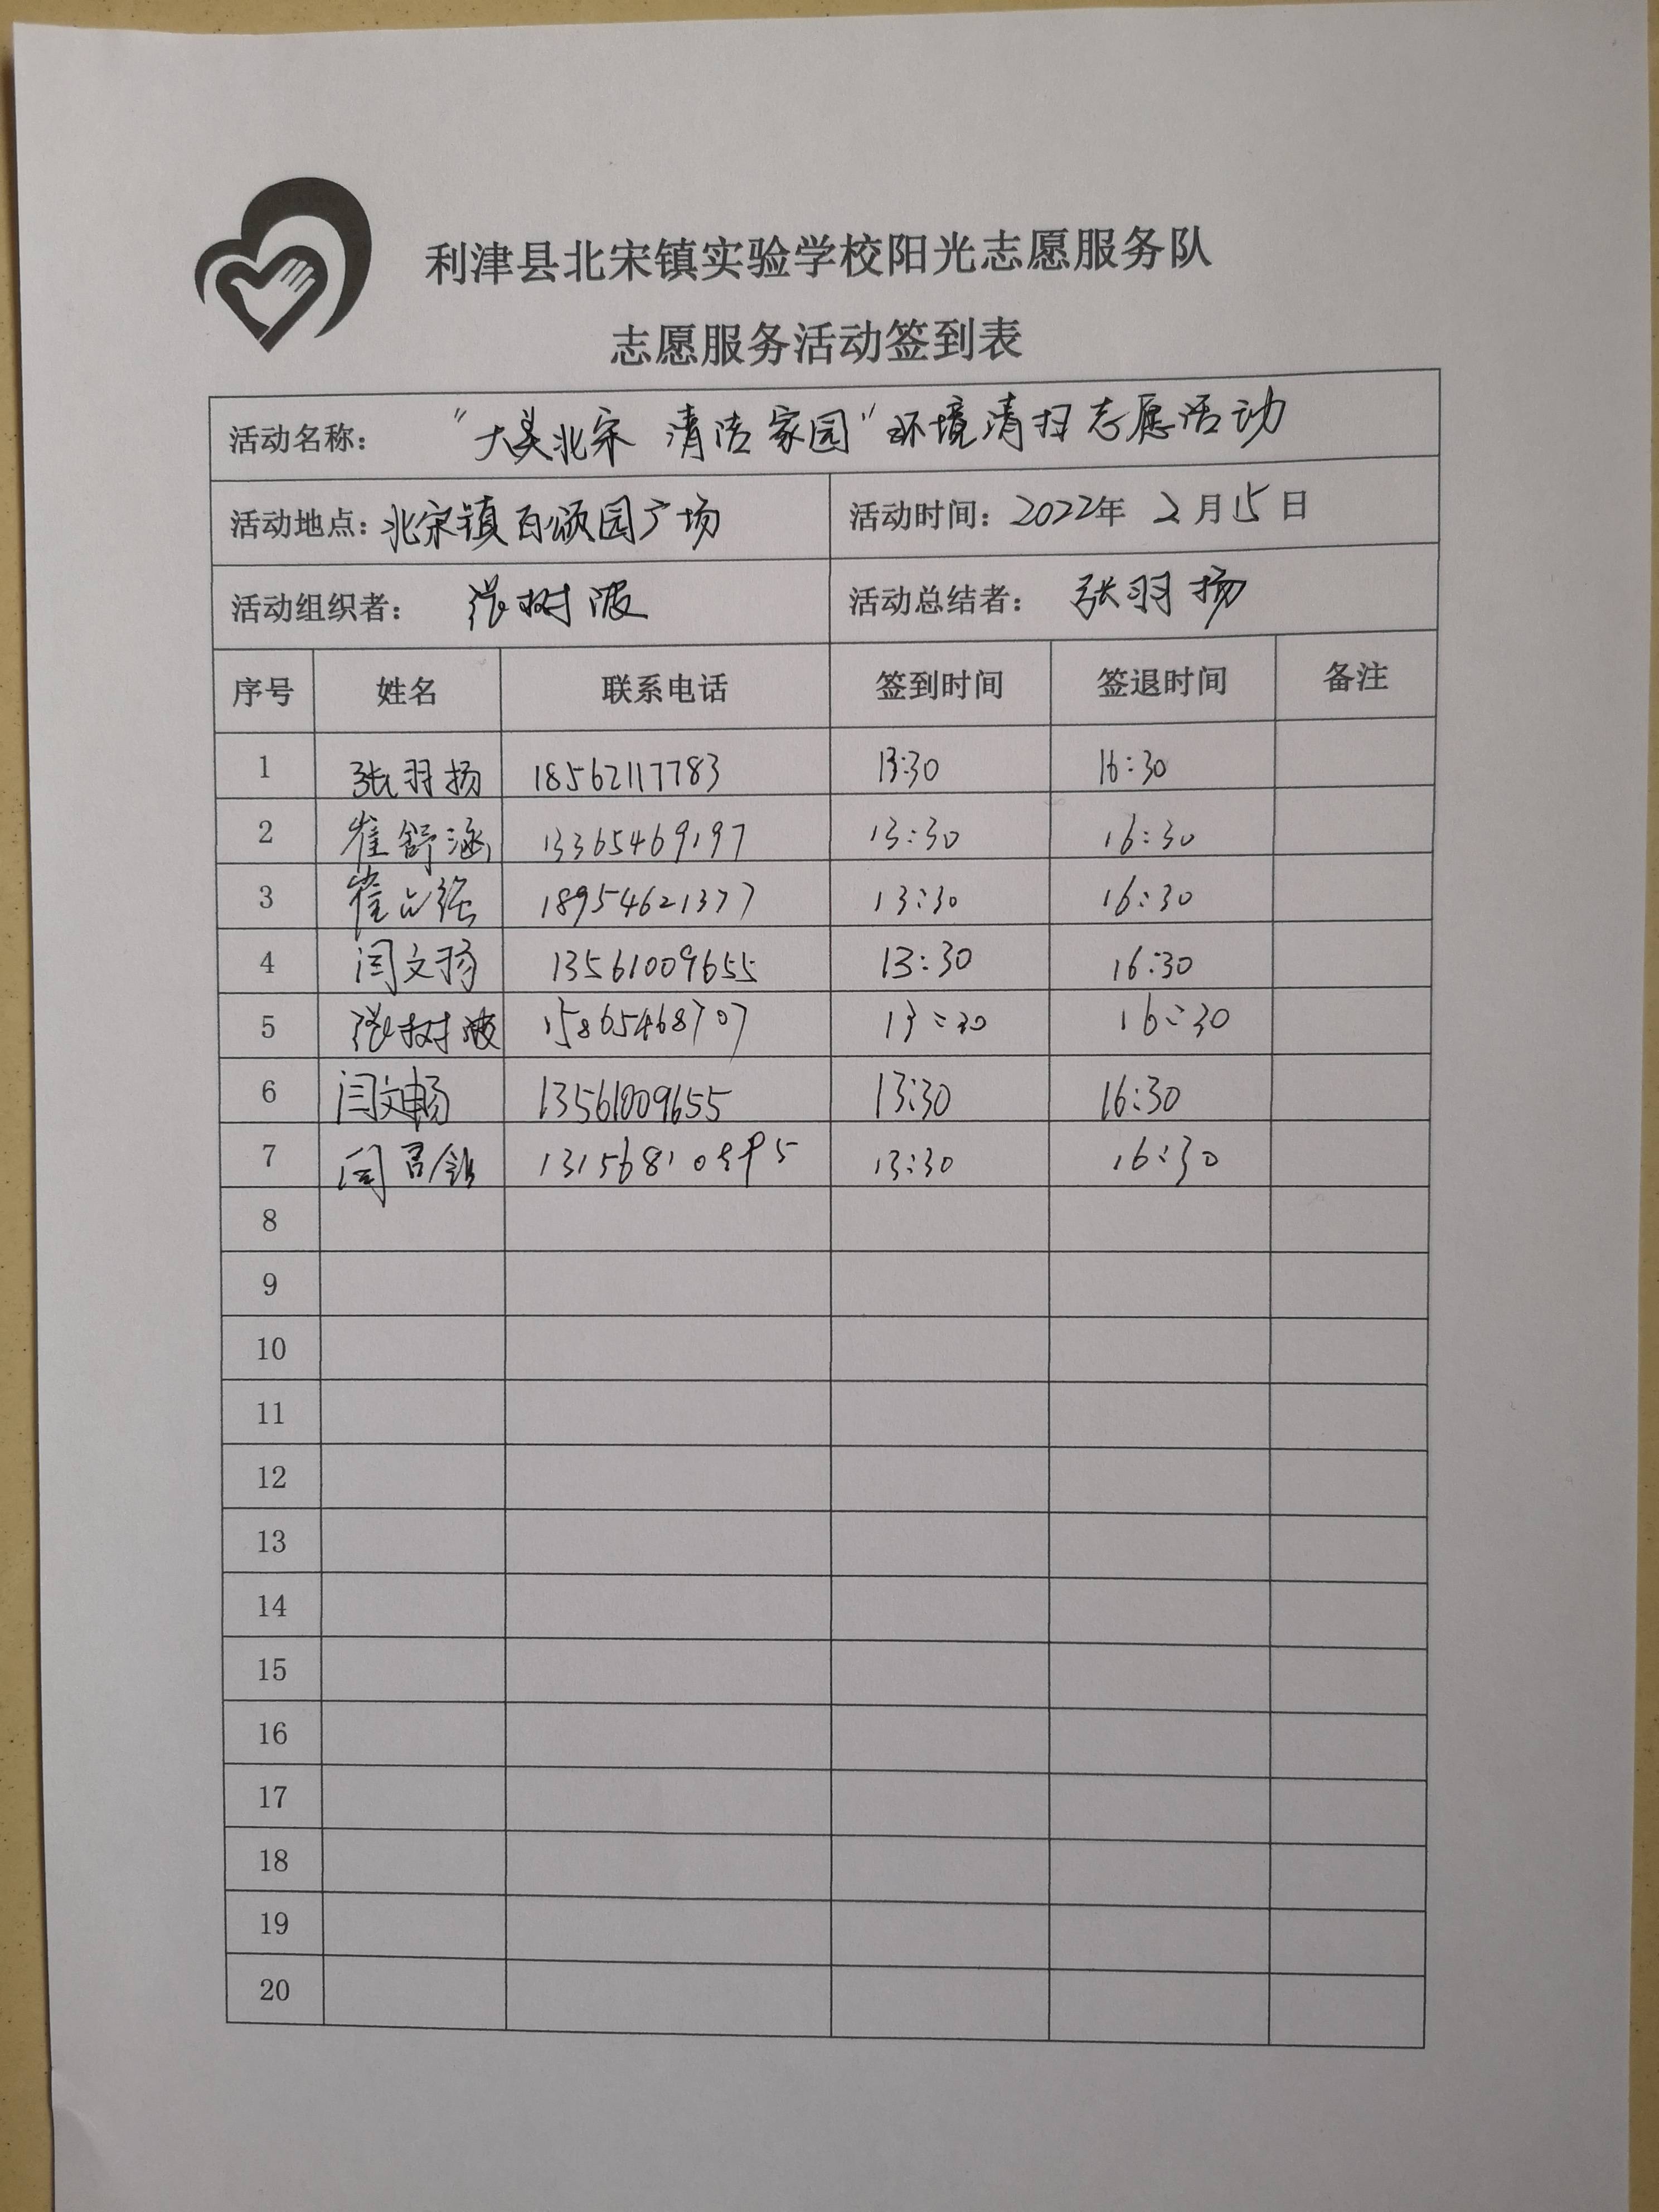 利津县北宋镇实验学校阳光志愿服务队
志愿服务活动签到表
活动名称： “大美北宋 清洁家园”环境清扫志愿活动
活动地点：北宋镇百颂园广场 活动时间：2022年 2月15日
活动组织者： 张树波 活动总结者： 张羽扬
序号 姓名 联系电话 签到时间 签退时间 备注
1 张羽扬 18562117783 13:30 16:30
2 崔舒涵 13365469197 13:30 16:30
3 崔 18954621377 13:30 16:30
4 闫文扬 13561009655 13:30 16:30
5 张树波 15865468707 13:30 16:30
6 闫文畅 13561009655 13:30 16:30
7 闫 13:30 16:30
8
9
10
11
12
13
14
15
16
17
18
19
20